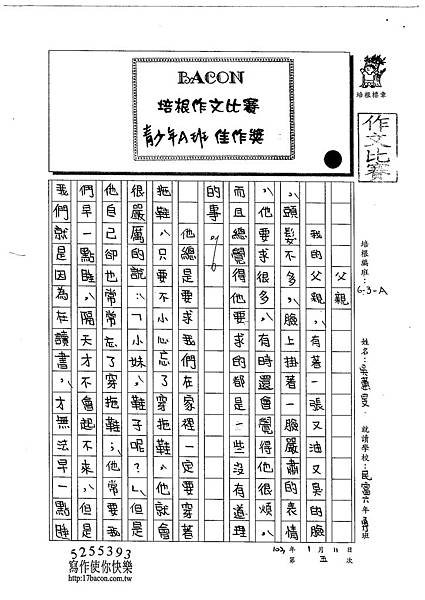 BACON
培根作文比賽
青少年A班 佳作獎
培根標章
作文比賽
培根編班：6-3-A
姓名：吳蕙旻
就讀學校：民富六年
父親
我的父親，有著一張又油又臭的臉
，頭髮不多，臉上掛著一臉嚴肅的表情
，他要求很多，有時還會覺得他很煩，
而且總覺得他要求的都是一些沒有道理
的事。
他總是要求我們在家裡一定要穿著
拖鞋，只要不小心忘了，他就會
很嚴厲的說：「小妹，鞋子呢？」但是
他自己卻也常常忘了穿拖鞋；他常要我
們早一點睡，隔天才不會起不來，但是
我們就是因為在讀書，才無法早一點睡
102年1月11日
第五次
5255393
寫作使你快樂
http:17bacon.com.tw